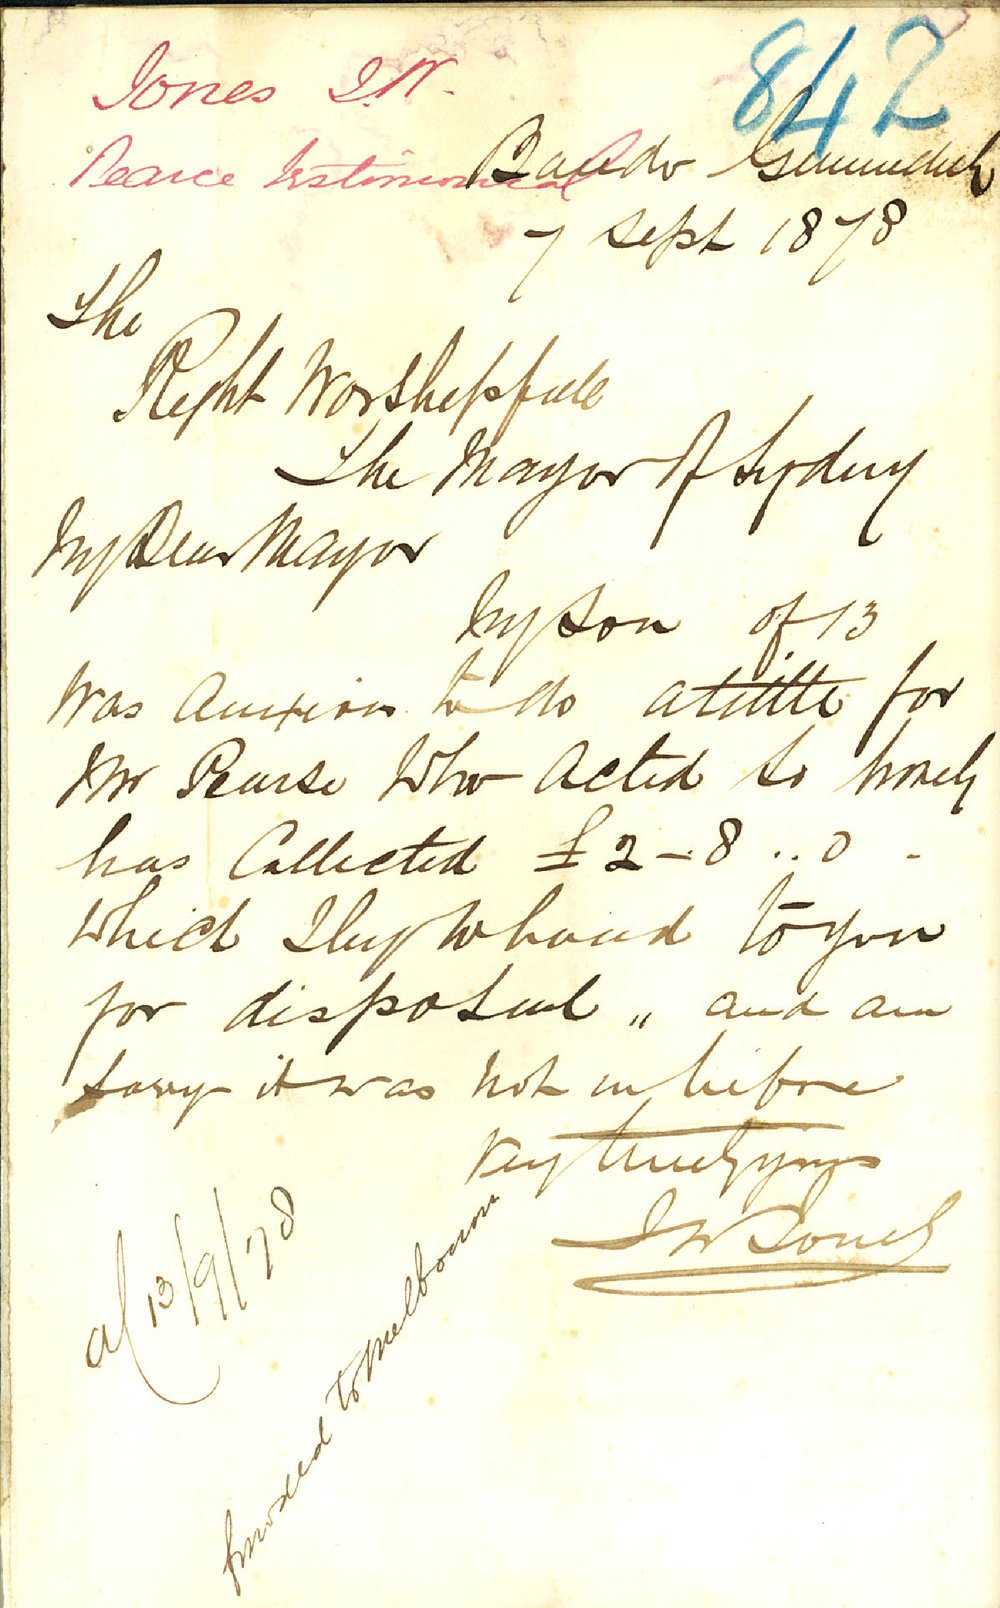 842
Jones I.W.
Pearce Testimonial
Bando Gunnedah
7 Sept 1878
The
Right Worshepfull
The Mayor of Sydney
My Dear Mayor
My Son of 13
Was Anxious to do a little for
Mr Pearse Who Acted so
has Collected £2-8..0-
Which I to you
for disposeal „ and am
sorry it was not in before
Very truly yours
J W Jones
al 13/9/78
forwarded to Melbourne